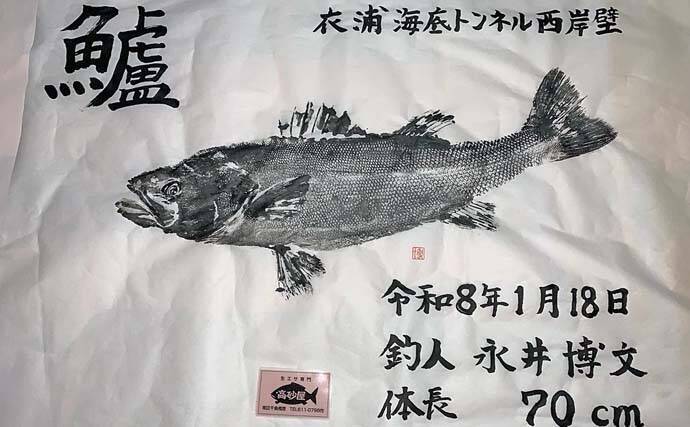 鱸
衣浦海底トンネル西岸壁
令和8年1月18日
釣人 永井博文
体長 70cm
生エサ専門
高砂屋
TEL611-0796